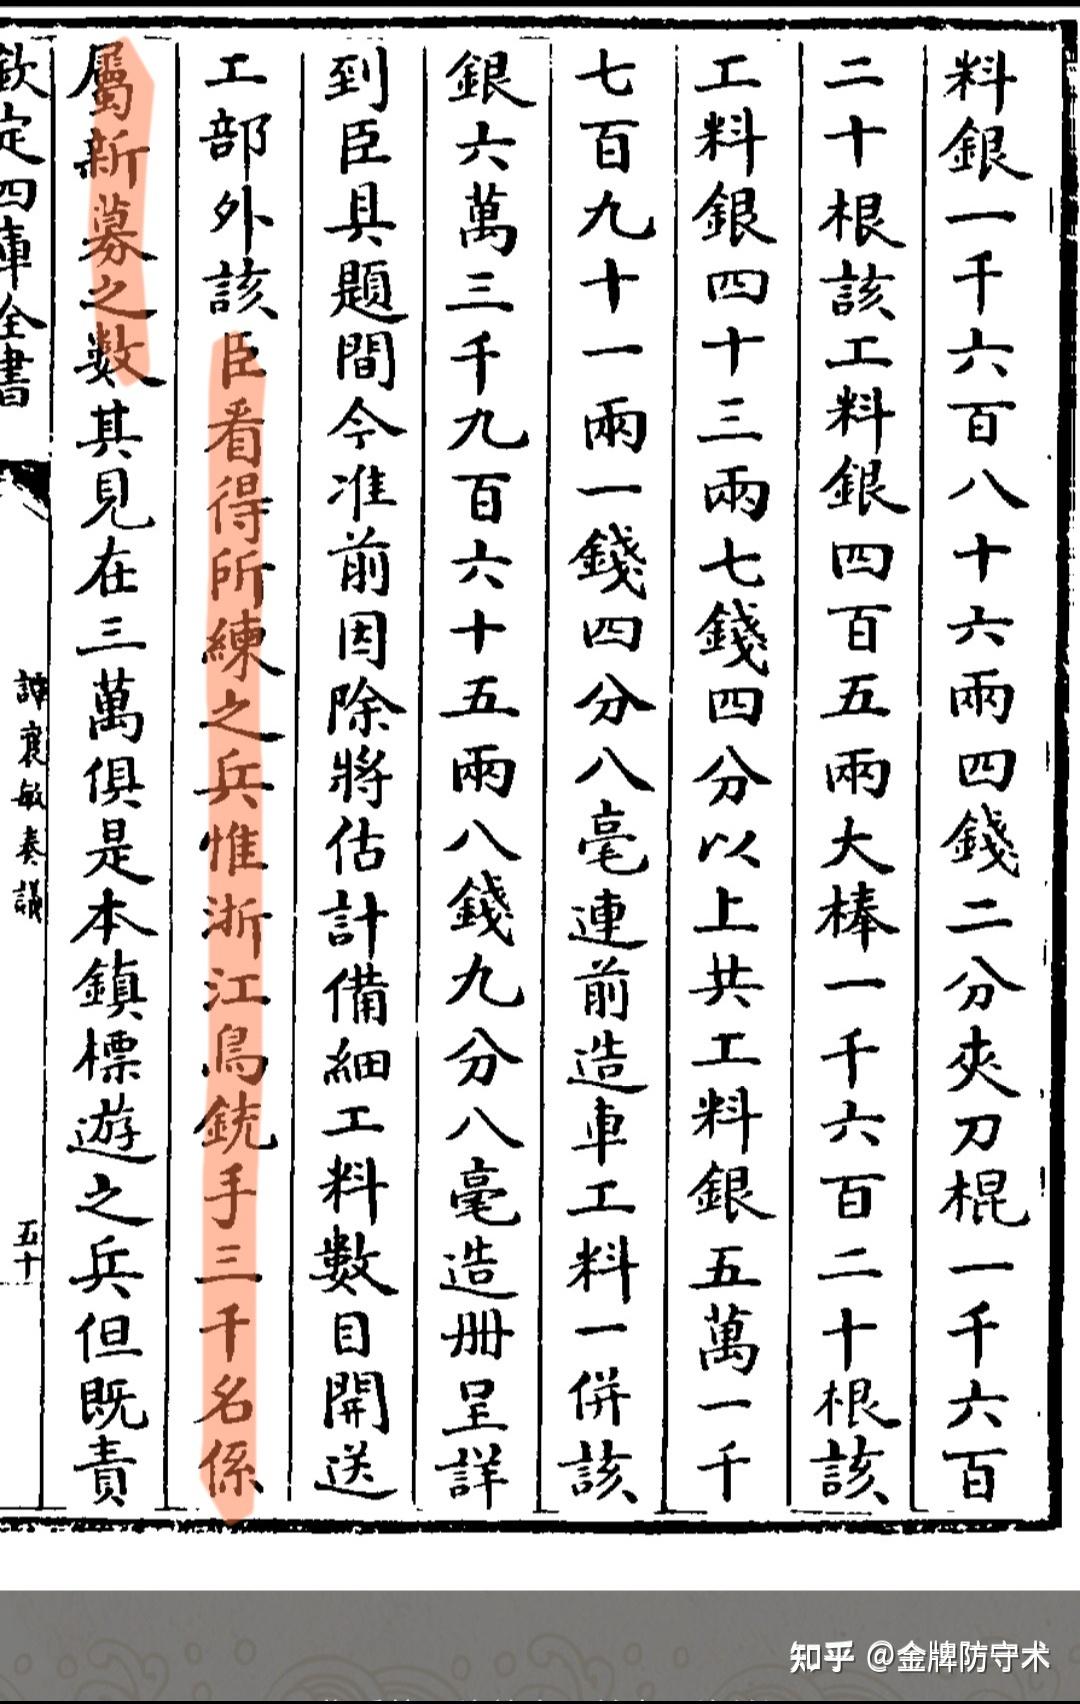 料銀一千六百八十六兩四錢二分夾刀棍一千六百
二十根該工料銀四百五兩大棒一千六百二十根該
工料銀四十三兩七錢四分以上共工料銀五萬一千
七百九十一兩一錢四分八毫連前造車工料一併該
銀六萬三千九百六十五兩八錢九分八毫造冊呈詳
到臣具題間今准前因除將估計備細工料數目開送
工部外該臣看得所練之兵惟浙江鳥銃手三千名係
屬新募之數其見在三萬俱是本鎮標遊之兵但既責
欽定四庫全書
譚襄敏奏議
五十
知乎 @金牌防守术